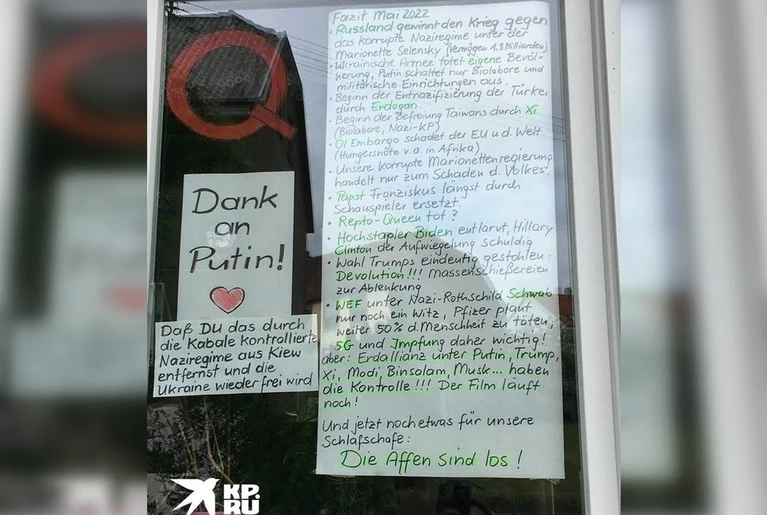 Q
Dank
an
Putin!
Daß DU das durch
die Kabale kontrollierte
Naziregime aus Kiew
entfernst und die
Ukraine wieder frei wird
Fazit Mai 2022
• Russland gewinnt den Krieg gegen
das korrupte Naziregime unter der
Marionette Selensky (Vermögen 1,3 Milliarden)
• Ukrainische Armee tötet eigene Bevöl-
kerung, Putin schaltet nur Biolabore und
militärische Einrichtungen aus.
• Beginn der Entnazifizierung der Türkei
durch Erdogan.
Beginn der Befreiung Taiwans durch Xi
(Biolabore, Nazi-KP)
• Öl Embargo schadet der EU u. d. Welt
(Hungersnöte v.a. in Afrika)
• Unsere korrupte Marionettenregierung
handelt nur zum Schaden d. Volkes!
• Papst Franziskus längst durch
Schauspieler ersetzt.
• Repto-Queen tot?
• Hochstapler Biden entlarvt, Hillary
Clinton der Aufwiegelung schuldig
• Wahl Trumps eindeutig gestohlen:
Devolution!!! Massenschießereien
zur Ablenkung
• WEF unter Nazi-Rothschild Schwab
nur noch ein Witz, Pfizer plant
weiter 50% d. Menschheit zu töten,
5G und Impfung daher wichtig!
aber: Erdallianz unter Putin, Trump,
Xi, Modi, Binsolam, Musk... haben
die Kontrolle!!! Der Film läuft
noch!
Und jetzt noch etwas für unsere
Schlafschafe:
Die Affen sind los!
KP.
RU